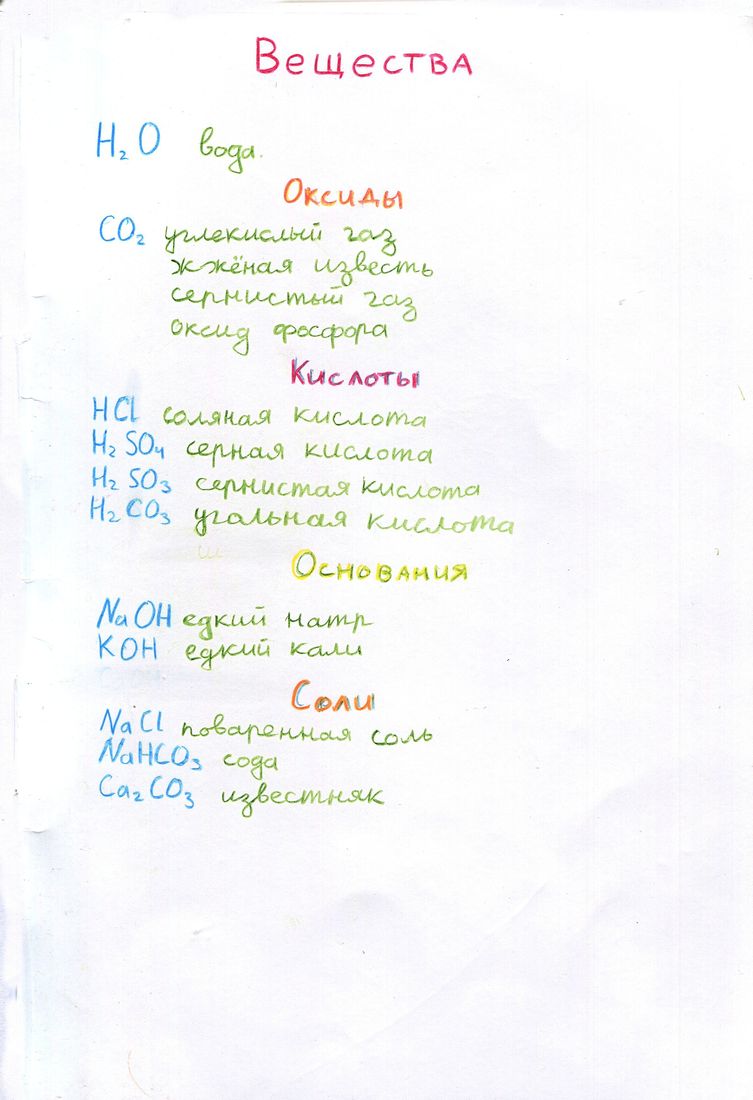 Вещества
H₂O вода.
Оксиды
CO₂ углекислый газ
жжёная известь
сернистый газ
оксид фосфора
Кислоты
HCl соляная кислота
H₂SO₄ серная кислота
H₂SO₃ сернистая кислота
H₂CO₃ угольная кислота
Основания
NaOH едкий натр
KOH едкий кали
Соли
NaCl поваренная соль
NaHCO₃ сода
Ca₂CO₃ известняк